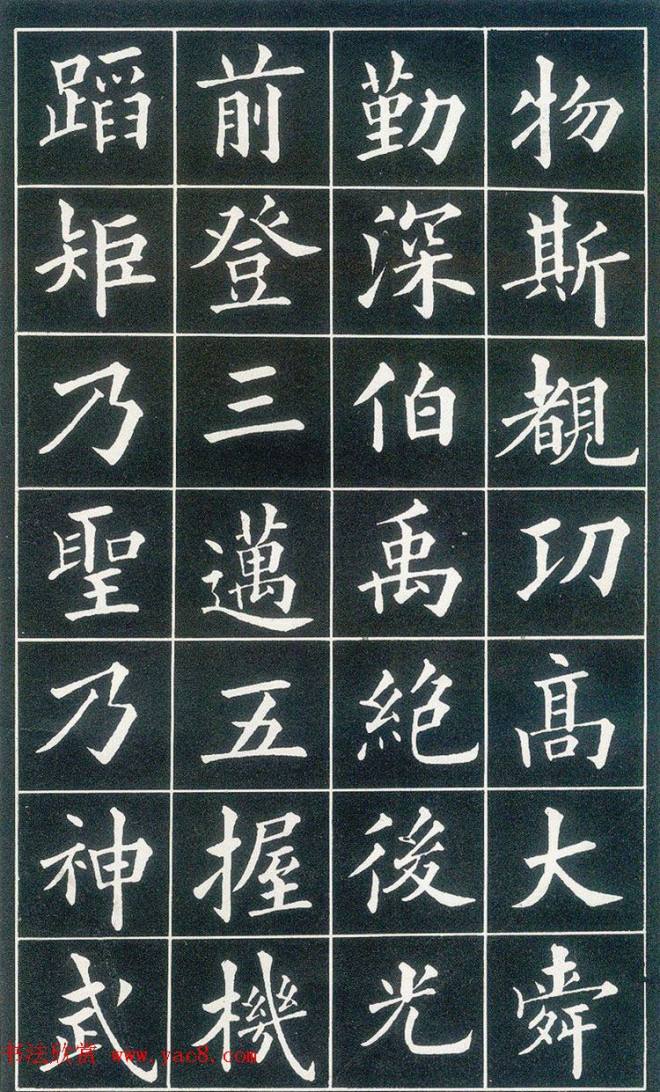 物斯覩功高大舜
勤深伯禹絶後光
前登三邁五握機
蹈矩乃聖乃神武
书法欣赏 www.yac8.com